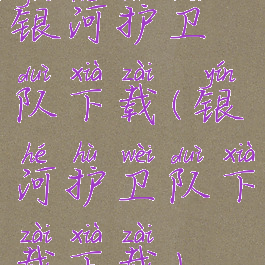 银河护卫
duì xià zài yín
队下载(银
hé hù wèi duì xià
河护卫队下
zài xià zài
载下载)